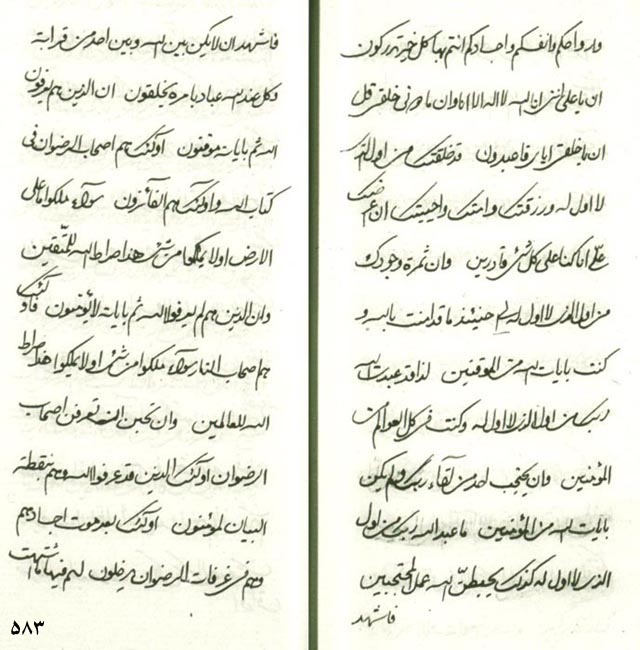 وارواحكم وانفسكم واجسادكم انتم بها كل خير تدركون
ان يا على انني انا الله لا اله الا انا وان ما دوني خلقي قل
ان يا خلقي اياي فاعبدون قد خلقتك من اول الذي
لا اول له ورزقتك وامتك واحييتك ان عرضت
علي انا كنا على كل شئ قادرين وان ثمرة وجودك
من اول الذي لا اول له حينئذ ما قد امنت بالله و
كنت بايات الله من الموقنين لذا قد عبدت الله
ربك من اول الذي لا اول له وكنت في كل العوالم من
المؤمنين وان يحتجب احد من لقاء ربك ولم يكن
بايات الله من المؤمنين ما عبد الله ربك من اول
الذي لا اول له كذلك يحبطن الله عمل المحتجبين
فاشهد
فاشهد ان لا يكن بين الله وبين احد من قرابة
وكل عند الله عباد بامره يخلقون ان الذين هم يعرفون
الله ثم باياته موقنون اولئك هم اصحاب الرضوان في
كتاب الله واولئك هم الفائزون سواء ملكوا ما على
الارض او لا يملكوا من شئ هذا صراط الله للمتقين
وان الذين هم لم يعرفوا الله ثم باياته لا يؤمنون فاولئك
هم اصحاب النار سواء ملكوا من شئ او لا يملكوا هذا صراط
الله للعالمين وان تحبن ان تعرفن اصحاب
الرضوان اولئك الذين قد عرفوا الله وهم بنقطة
البيان لمؤمنون اولئك بعد موت اجسادهم
وهم في غرفات الرضوان يدخلون لهم فيها ما اشتهت
۵۸۳